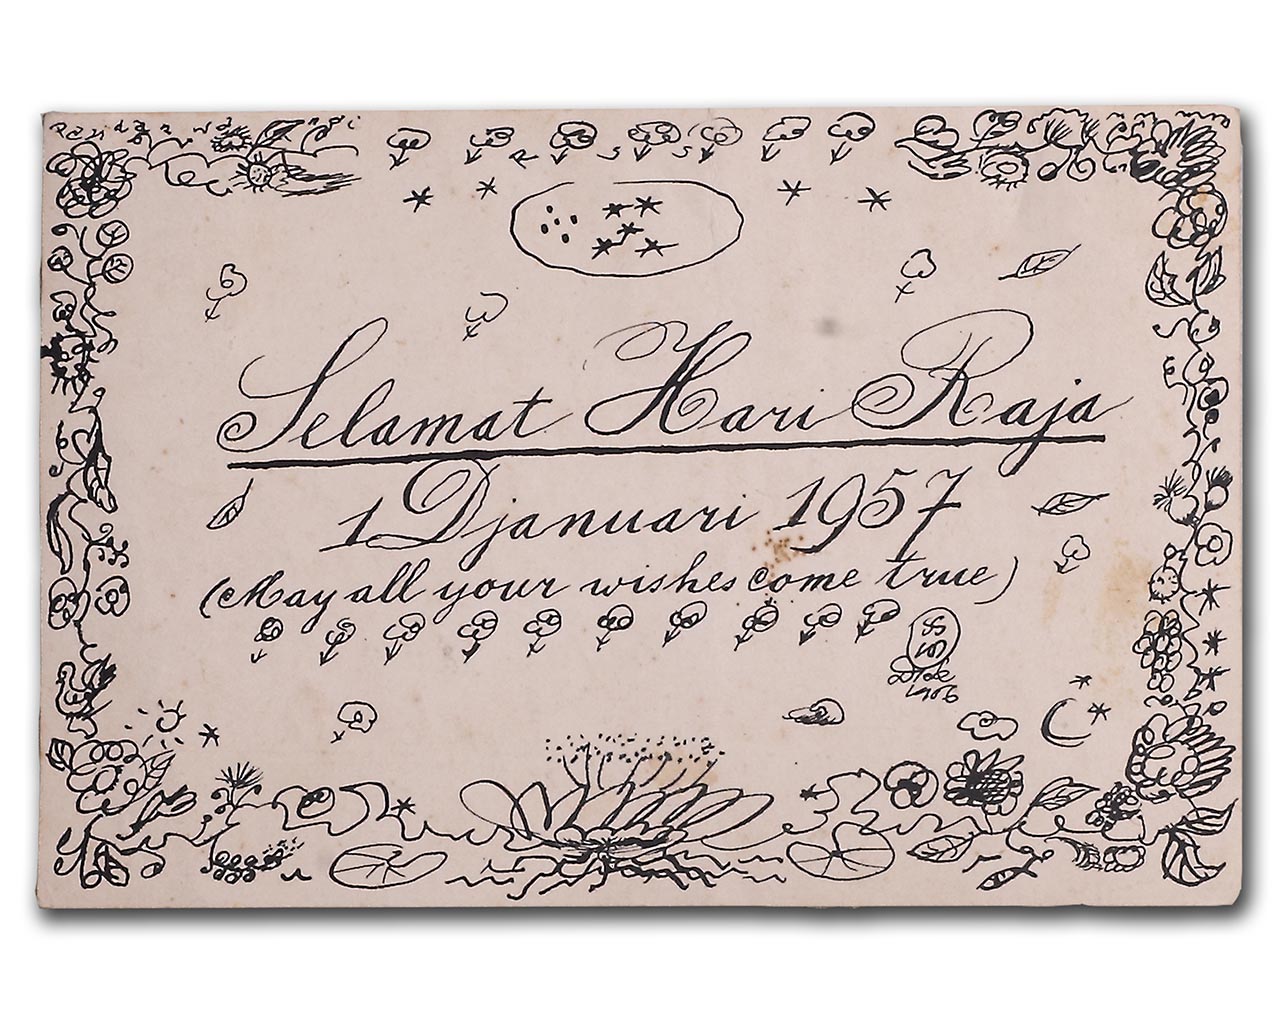 Selamat Hari Raja
1 Djanuari 1957
(May all your wishes come true)